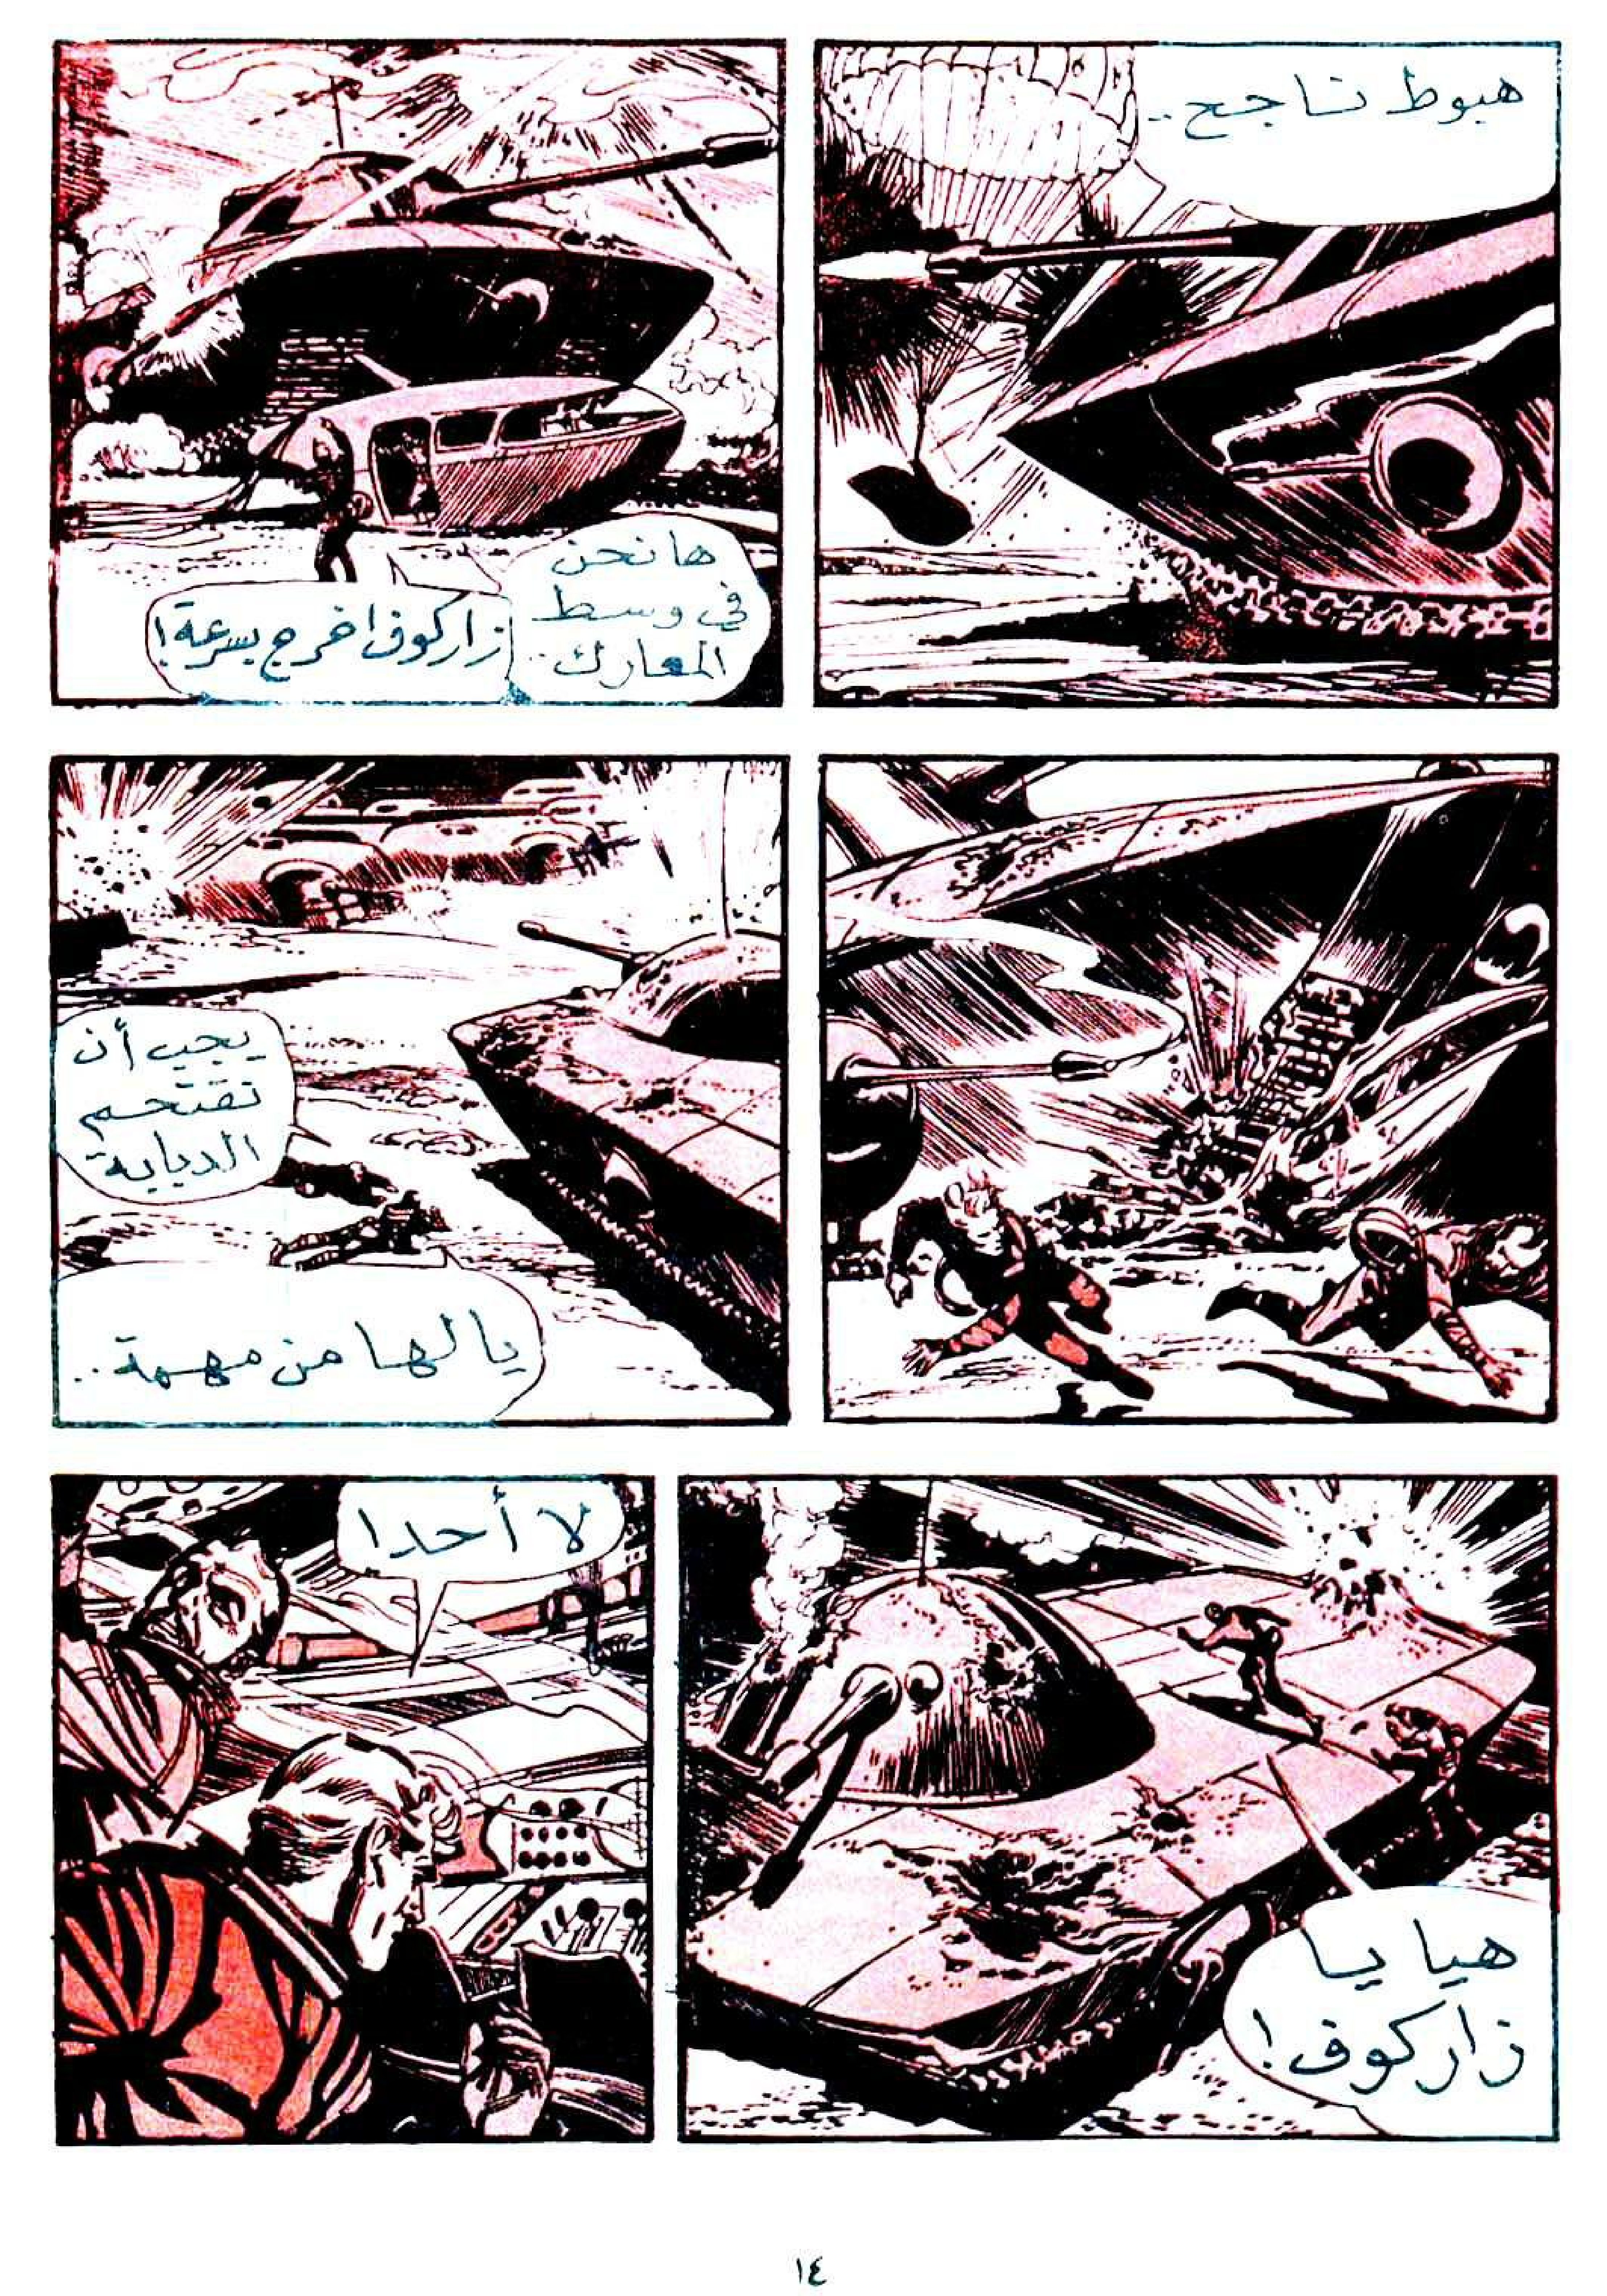 هبوط ناجح..
ها نحن
في وسط
المعارك..
زاركوف اخرج بسرعة!
يجب أن
نقتحم
الدبابة
يا لها من مهمة..
هيا يا
زاركوف!
لا أحدا
١٤